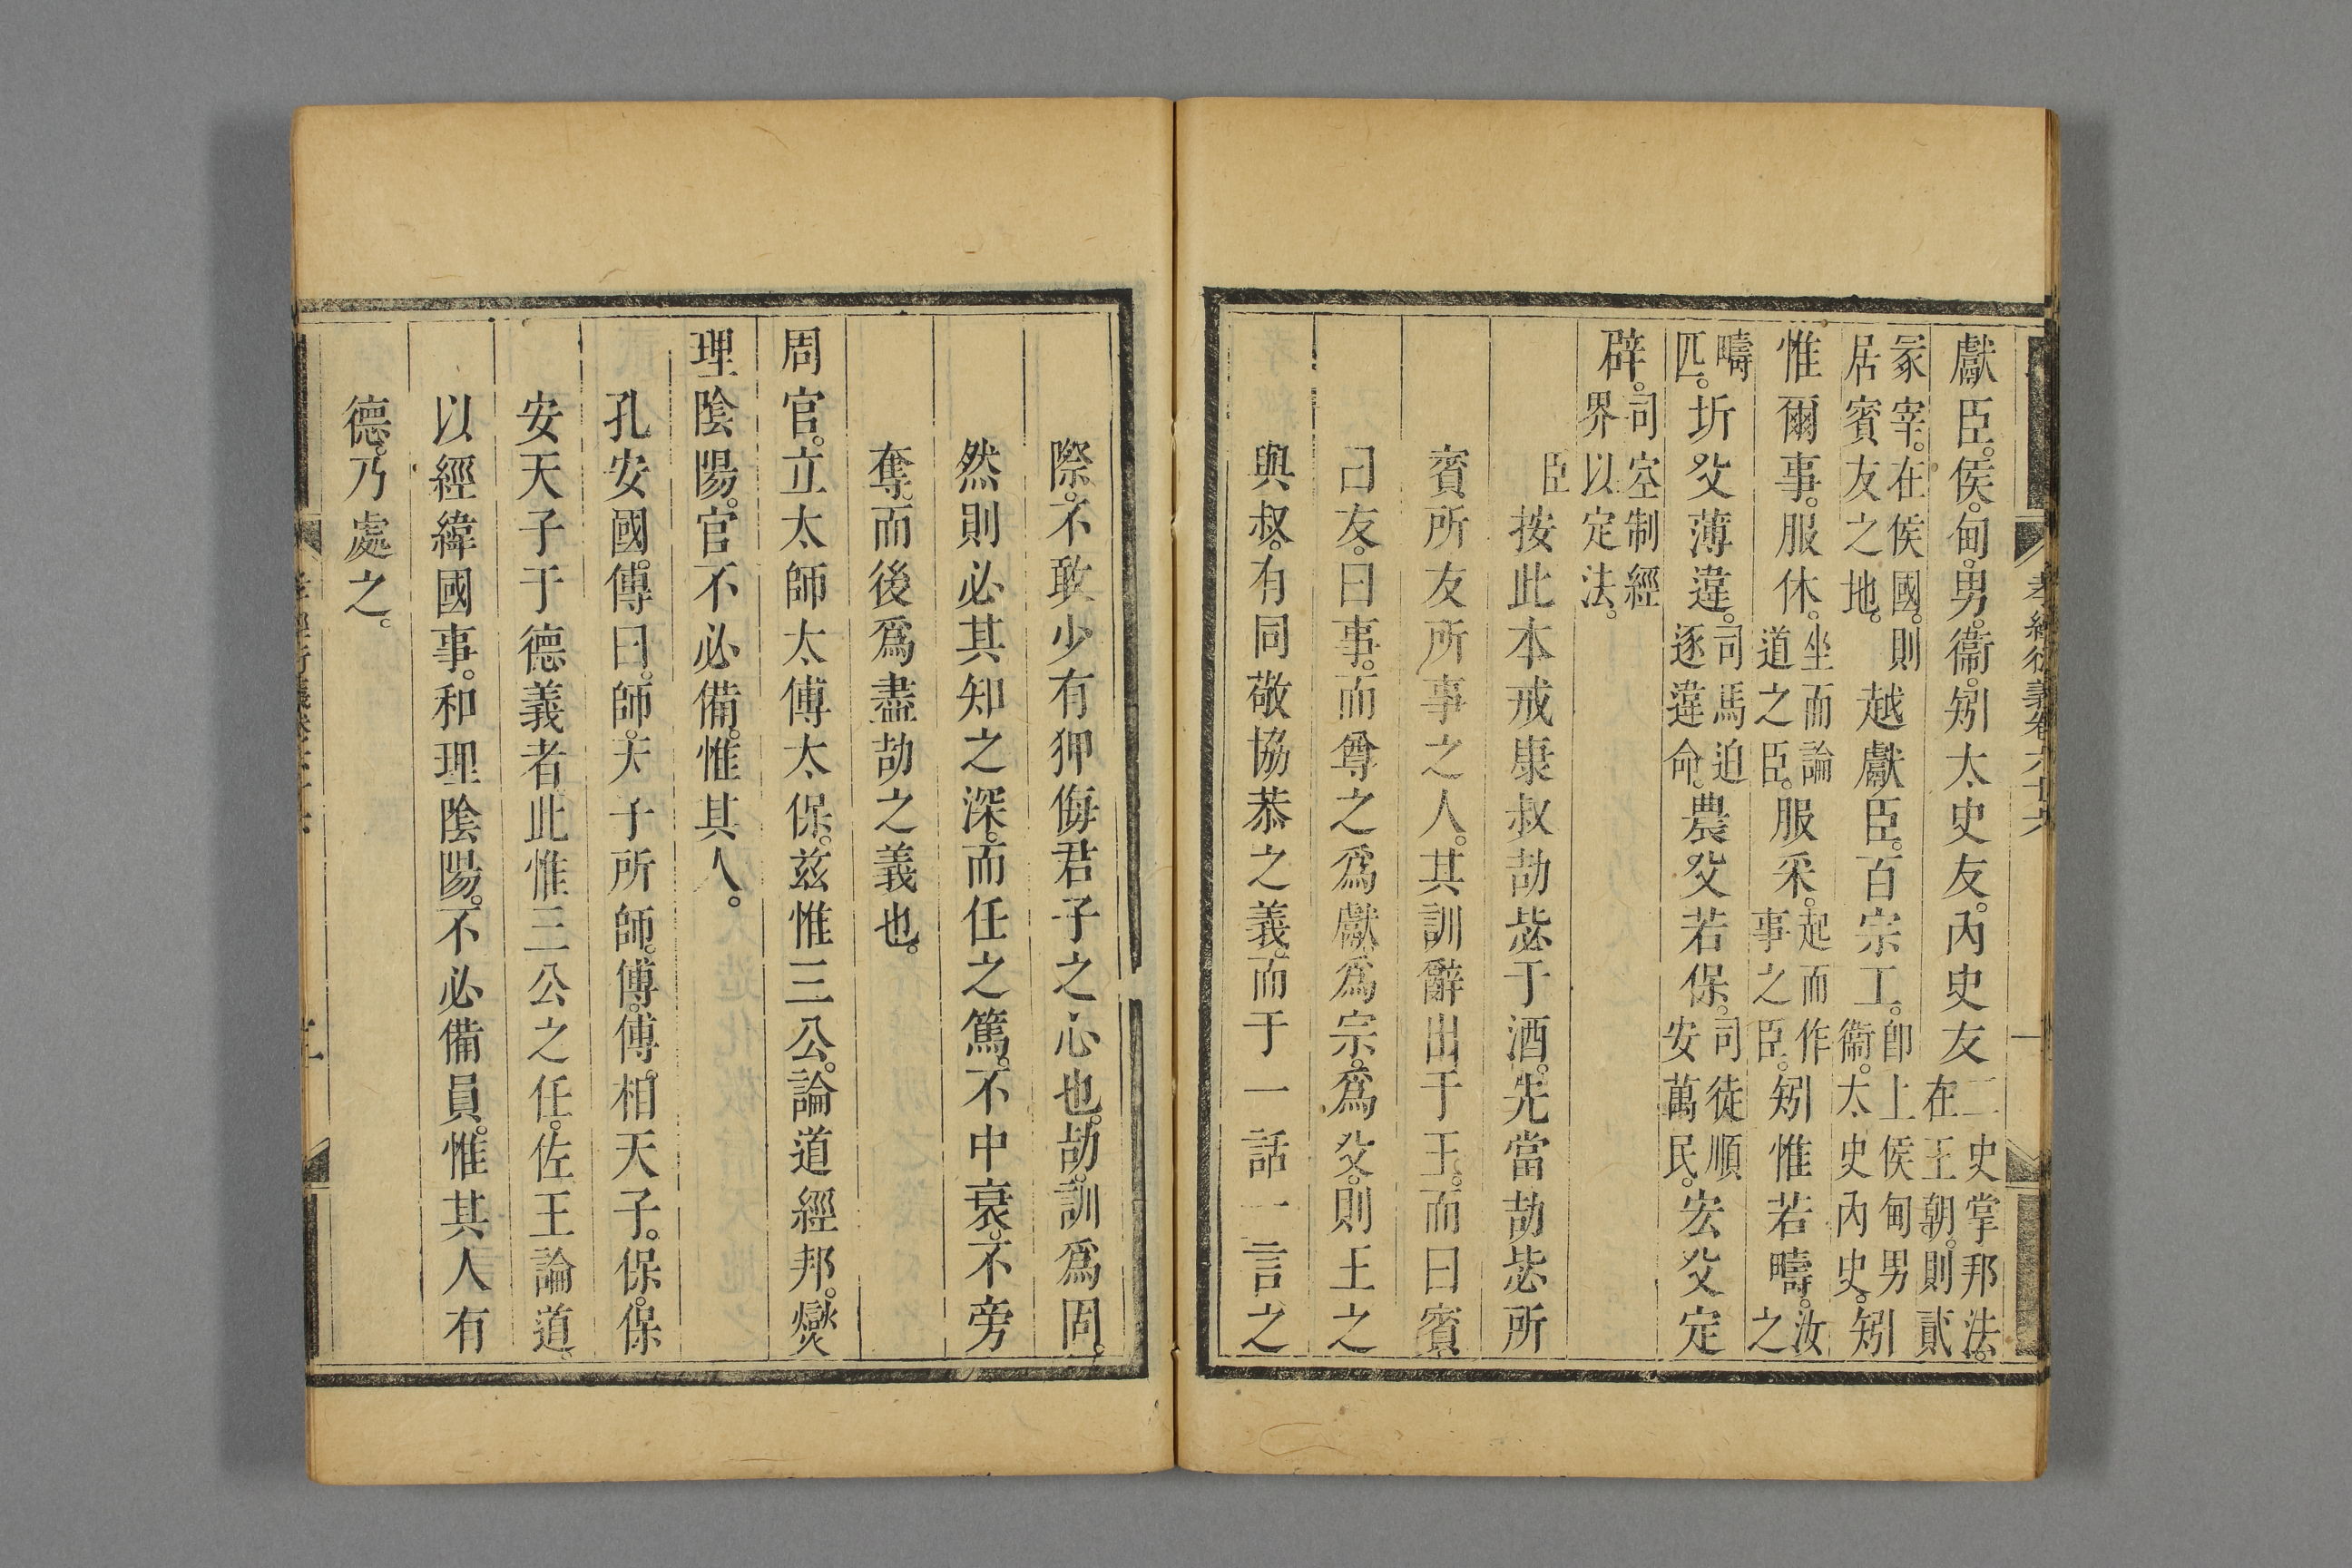 孝經衍義卷六十六　一
獻臣。侯。甸。男。衞。矧太史友。內史友二史掌邦法。在王朝。則貳
冢宰。在侯國。則居賓友之地。越獻臣。百宗工。卽上侯甸男衞。太史內史。矧
惟爾事。服休。坐而論道之臣。服采。起而作事之臣。矧惟若疇。汝之
疇匹。圻父薄違。司馬迫逐違命。農父若保。司徒順安萬民。宏父定
辟。司空制經界以定法。
臣按此本戒康叔劼毖于酒。先當劼毖所
賓所友所事之人。其訓辭出于王。而曰賓
曰友。曰事。而尊之爲獻。爲宗。爲父。則王之
與叔。有同敬協恭之義。而于一話一言之
際。不敢少有狎侮君子之心也。劼。訓爲固。
然則必其知之深。而任之篤。不中衰。不旁
奪。而後爲盡劼之義也。
周官。立太師太傅太保。兹惟三公。論道經邦。爕
理陰陽。官不必備。惟其人。
孔安國。傳曰。師。天子所師。傅。傅相天子。保。保
安天子于德義者此惟三公之任。佐王論道。
以經緯國事。和理陰陽。不必備員。惟其人有
德。乃處之。